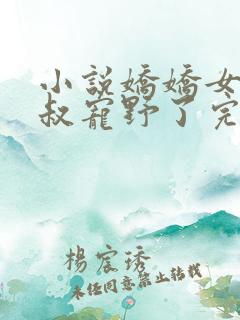 小說嬌嬌女
叔寵野了完
楊宸琇
未經同意禁止轉載